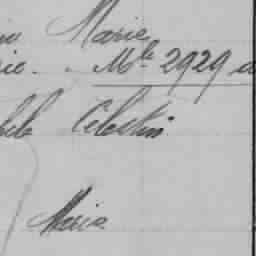 Marie
Mle 2929
Célestin
Marie